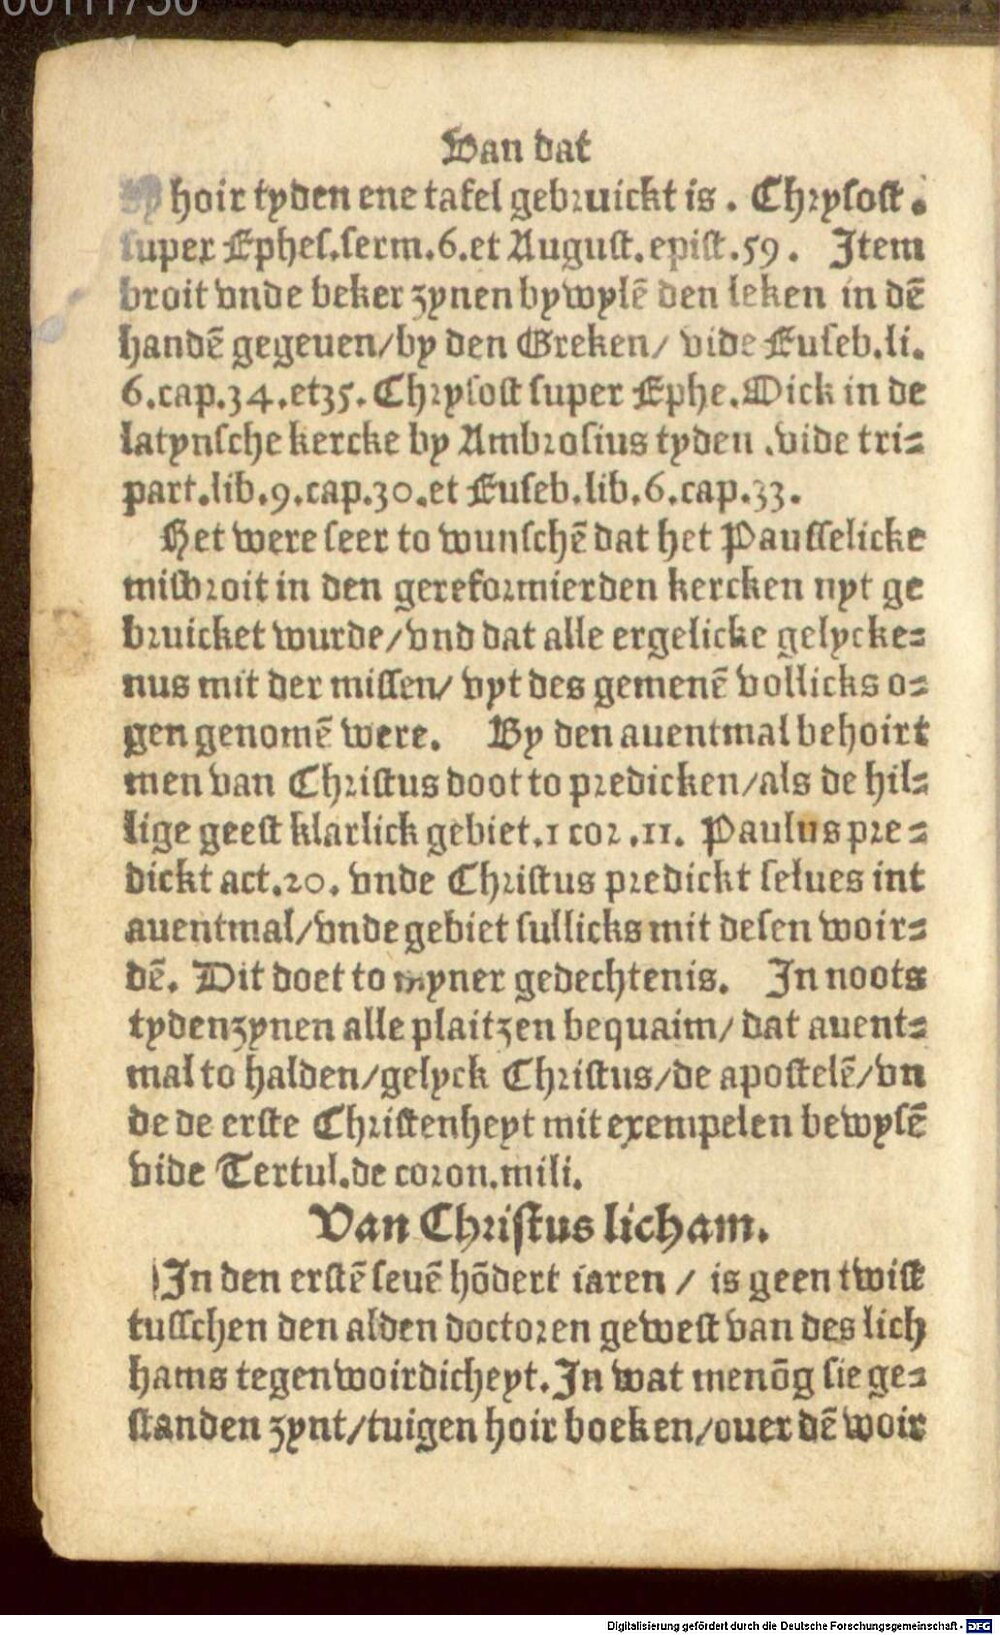 00111730
Van dat
by hoir tyden ene tafel gebruickt is. Chrysost.
super Ephes.serm.6.et August.epist.59. Item
broit vnde beker zynen bywylē den leken in dē
handē gegeuen/by den Greken/ vide Euseb.li.
6.cap.34.et35.Chrysost super Ephe.Dick in de
latynsche kercke by Ambrosius tyden .vide tri=
part.lib.9.cap.30.et Euseb.lib.6.cap.33.
Het were seer to wunschē dat het Pausselicke
misbroit in den gereformierden kercken nyt ge
bruicket wurde/vnd dat alle ergelicke gelycke=
nus mit der missen/ vyt des gemenē vollicks o=
gen genomē were. By den auentmal behoirt
men van Christus doot to predicken/als de hil=
lige geest klarlick gebiet.1 cor.11. Paulus pre=
dickt act.20. vnde Christus predickt selues int
auentmal/vnde gebiet sullicks mit desen woir=
dē. Dit doet to myner gedechtenis. In noots
tyden zynen alle plaitzen bequaim/ dat auent=
mal to halden/gelyck Christus/de apostelē/vn
de de erste Christenheyt mit exempelen bewysē
vide Tertul.de coron.mili.
Van Christus licham.
In den erstē seuē hōdert iaren / is geen twist
tusschen den alden doctoren gewest van des lich
hams tegenwoirdicheyt.In wat menōg sie ge=
standen zynt/tuigen hoir boeken/ouer dē woir
Digitalisierung gefördert durch die Deutsche Forschungsgemeinschaft - DFG